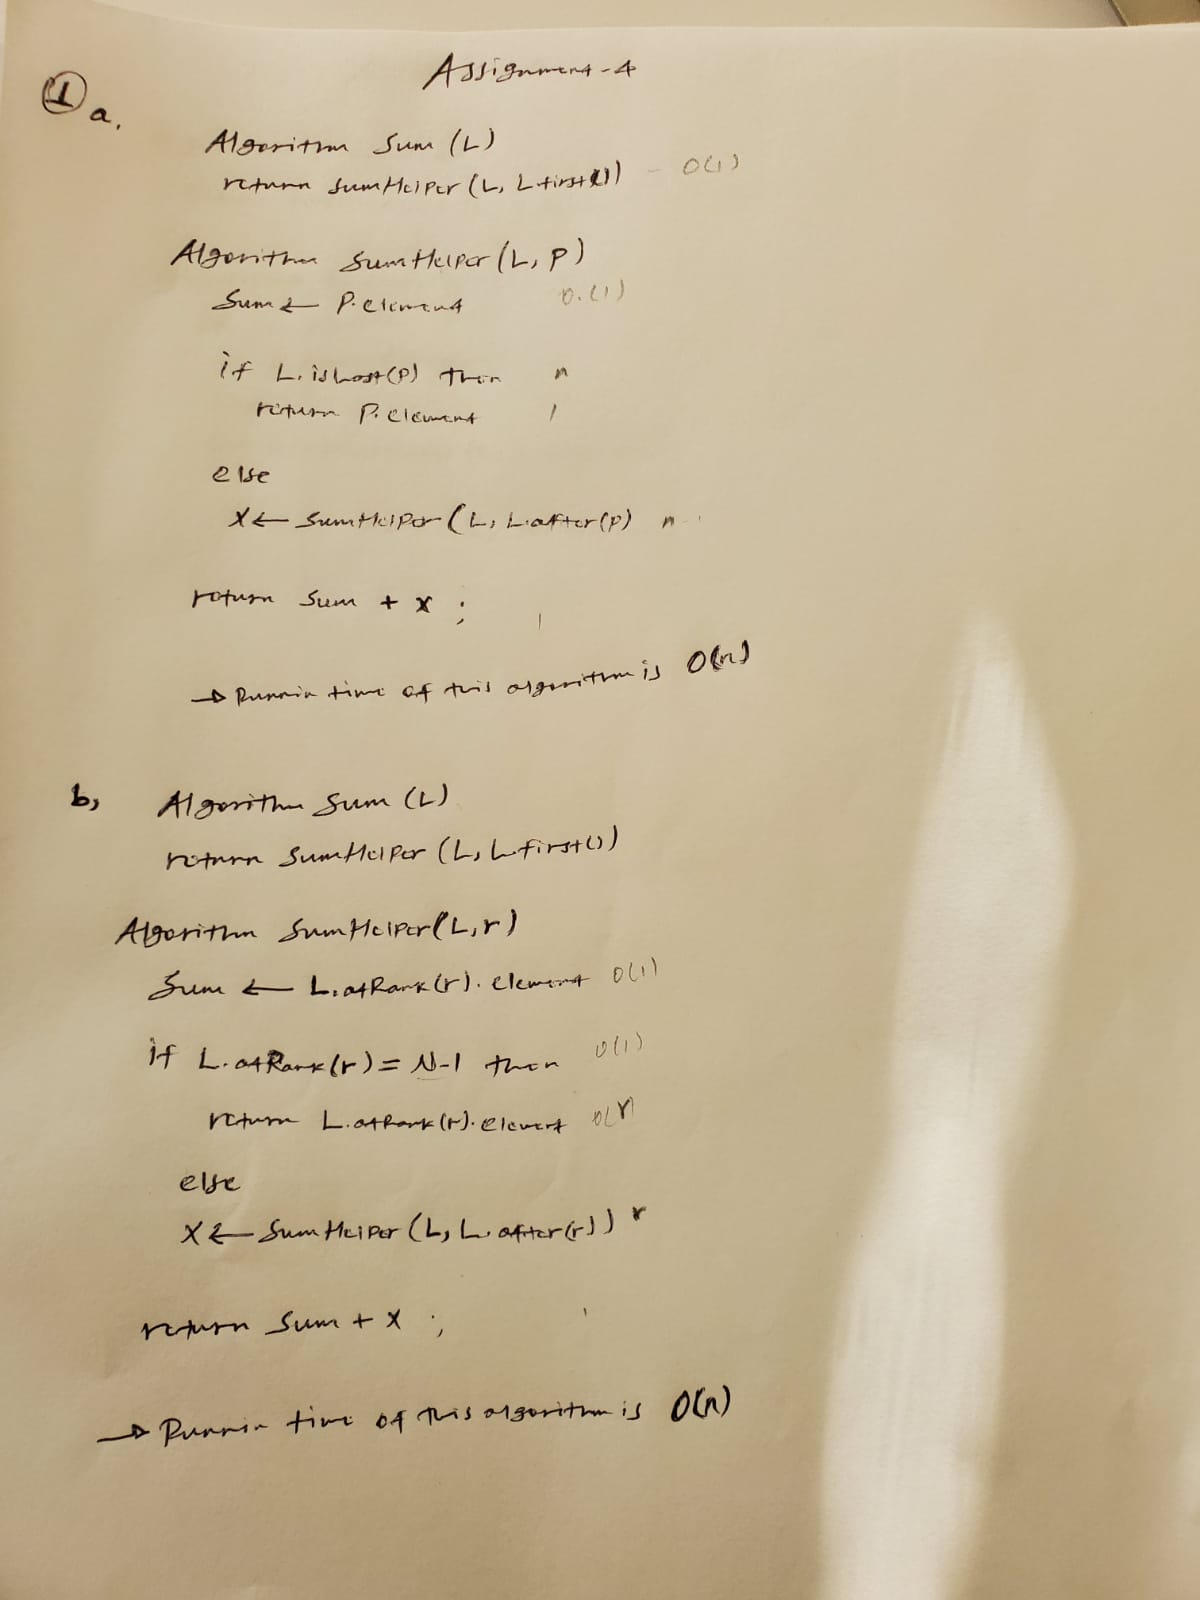 Assignment-4
1 a.
Algorithm Sum (L)
return sumHelper (L, L.first()) - O(1)
Algorithm SumHelper (L, P)
Sum ← P.element O.(1)
if L.isLast(P) then n
return P.element 1
else
X ← SumHelper (L, L.after(P) n
return Sum + x ; 1
→ Runnin time of this algorithm is O(n)
b,
Algorithm Sum (L)
return SumHelper (L, L.first())
Algorithm SumHelper(L,r)
Sum ← L.atRank(r). element O(1)
if L.atRank(r) = N-1 then O(1)
return L.atRank(r).element
else
X ← SumHelper (L, L.after(r)) r
return Sum + X ; 1
→ Runnin time of this algorithm is O(n)